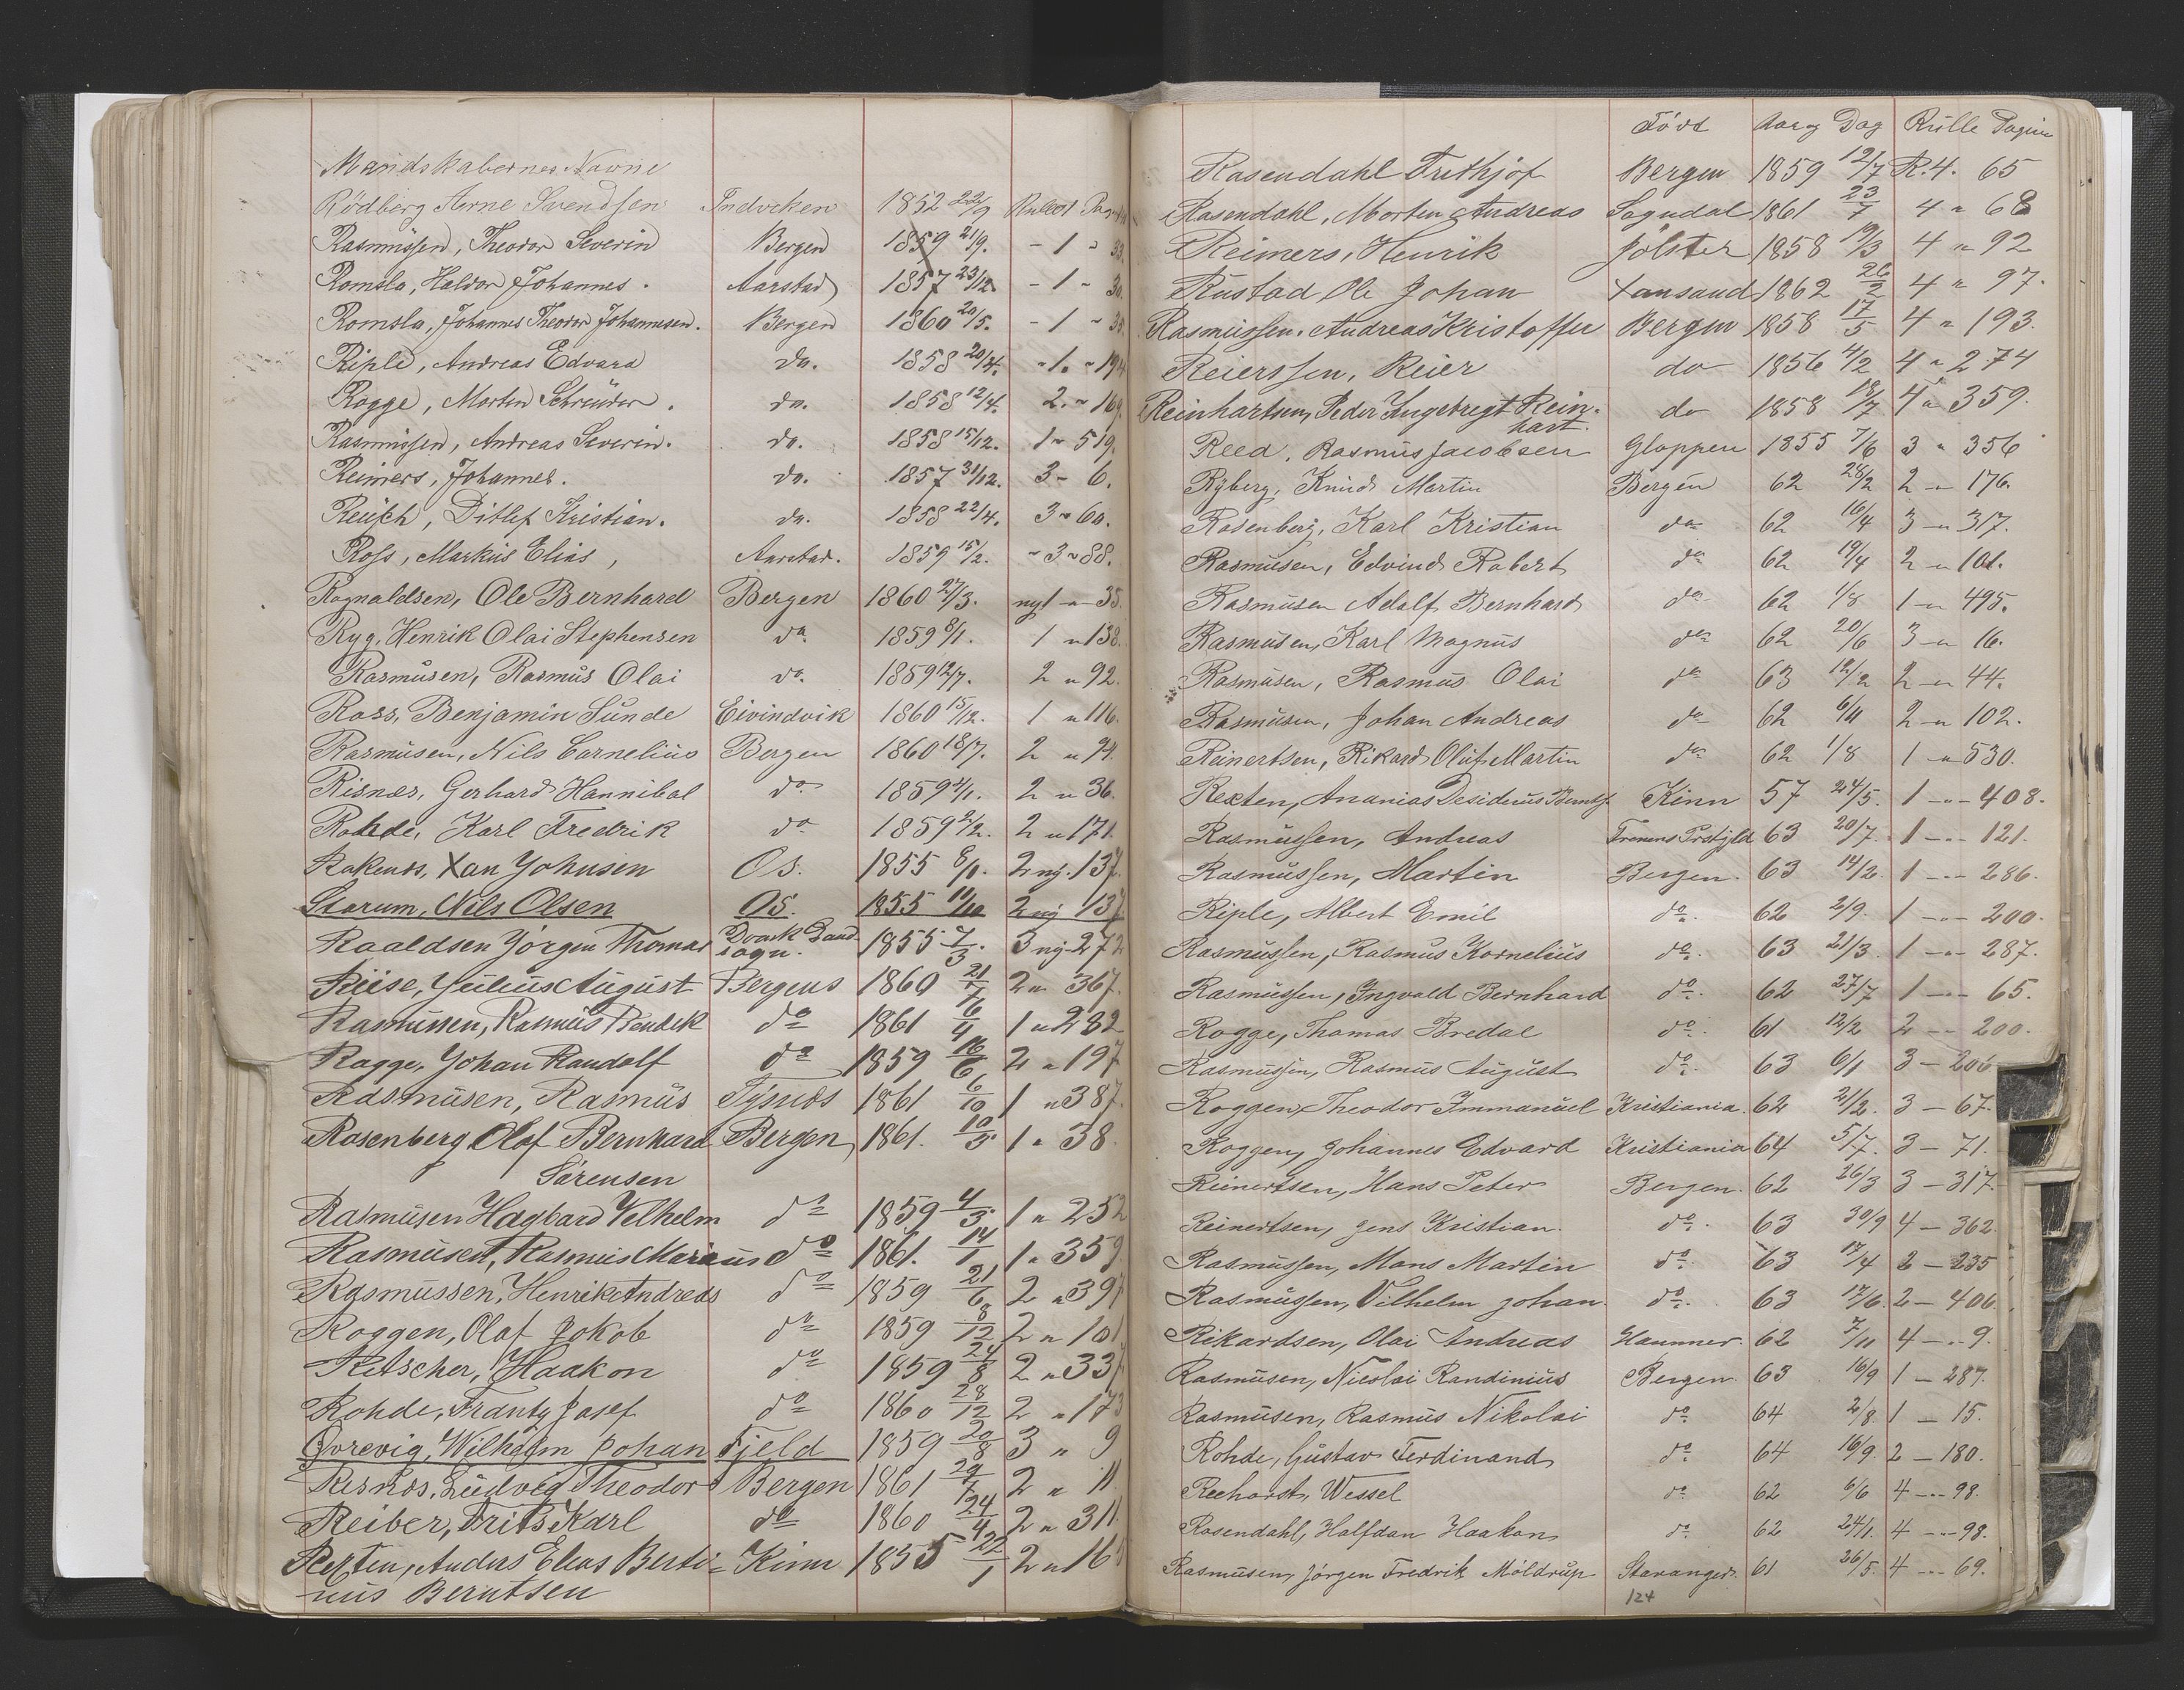 Mandskabernes Navne
Rödberg Arne Svendsen Indviken 1852 22/9 Rullers Pagina
Rasmussen, Theodor Severin Bergen 1859 21/9. - 1 " 33.
Romslo, Haldor Johannes. Aarstad 1857 23/12. - 1 - 30.
Romslo, Johannes Theodor Johannesen. Bergen 1860 20/5. - 1 -
Riple, Andreas Edvard do. 1858 20/4. - 1. " 194
Rogge, Morten Schrøder. do. 1858 12/4. 2. " 169.
Rasmussen, Andreas Severin. do. 1858 15/12. 1 " 519.
Reimers, Johannes. do. 1857 31/12. 3 - 6.
Reusch, Ditlef Kristian. do. 1858 22/4. 3 " 60.
Ross, Markus Elias, Aarstad. 1859 15/2. " 3 " 88.
Rognaldsen, Ole Bernhard Bergen 1860 27/3. ny 1 - " - 35.
Ryg, Henrik Olai Stephensen do. 1859 8/1. 1 " 138.
Rasmusen, Rasmus Olai do. 1859 12/7. 2 " 92.
Ross, Benjamin Sunde Eivindvik 1860 15/12. 1 " 116.
Rasmusen, Nils Cornelius Bergen 1860 18/7. 2 " 74.
Risnæs, Gerhard Hannibal do 1859 4/1. 2 " 36.
Rohde, Karl Fredrik do 1859 2/2. 2 " 171.
Rakends, Xan Johnsen Os. 1855 8/1. 2 ny. 137.
Storum, Nils Olsen Os. 1855 11/10 2 ny 137
Raaldsen Jørgen Thomas 1855 7/3. 3 ny. 272
Riise, Julius August Bergens 1860 21/7 2 " 367.
Rasmussen, Rasmus Bendik do 1861 6/4 1 " 282
Rogge, Johan Randolf do 1859 16/6 2 " 197
Rasmusen, Rasmus Tysnæs 1861 6/10 1 " 387.
Rosenberg Olaf Bernhard Bergen 1861. 10/3 1 " 38.
Sørensen
Rasmusen Hagbard Velhelm do 1859 4/3 1 " 252
Rasmusen, Rasmus Marius do 1861. 14/1 1 " 359
Rasmussen, Henrik Andreas do 1859 21/6 2 " 397
Roggen, Olaf Jakob do 1859 8/12 2 " 101
Ritscher, Haakon do 1859 24/8 2 " 337
Rohde, Frantz Josef do 1860 28/12 2 " 173
Qvrevig, Wilhelm Johan Fjeld 1859 20/8 3 " 9
Risnæs, Ludvig Theodor Bergen 1861 29/7 2 " 11
Reiber, Frits Karl do 1860 24/4 2 " 311.
Rexten, Anders Elias Berti- Kinn 1855 22/1 2 " 16
nus Berntsen
Född Aar og Dag Rulle Pagina
Rosendahl Frithjof Bergen 1859 12/7 R. 4. 65
Rosendahl, Morten Andreas Sogndal 1861 23/7 4 " 68
Reimers, Henrik Jølster 1858 19/3 4 " 92
Rustad Ole Johan Xansand 1862 26/2 4 " 97.
Rasmussen. Andreas Kristoffer Bergen 1858 17/5 4 " 193.
Reierssen, Reier do 1856 4/2 4 " 274
Reinhartsen, Peder Ingebregt Rein- do 1858 18/7 4 " 359.
hart.
Reed, Rasmus Jacobsen Gloppen 1855 7/6 3 " 356
Ryberg, Knud Martin Bergen 62 28/2 2 - " - 176.
Rosenberg, Karl Kristian do 62 16/4 3 - " 317.
Rasmusen, Edvind Robert do 62 19/4 2 - " 101.
Rasmusen Adolf Bernhard do 62 1/8 1 - " 495.
Rasmusen, Karl Magnus do 62 20/6 3 - " 16.
Rasmusen, Rasmus Olai do 63 12/2 2 - " 44.
Rasmusen, Johan Andreas do 62 6/11 2 - " 102.
Reinertsen, Rikard Oluf Martin do 62 1/8 1 - " 530.
Rexten, Ananias Desiderius Berntsf. Kinn 57 24/5. 1 - " - 408.
Rasmussen, Andreas Frenens Prstgjld 63 20/7. 1 - " - 121.
Rasmussen, Martin Bergen. 63 14/2. 1 - " - 286.
Riple, Albert Emil do. 62 2/9. 1 - " - 200.
Rasmussen, Rasmus Kornelius do. 63 21/3. 1 - " - 287.
Rasmussen, Ingvald Bernhard do. 62 27/7 1 - " - 65.
Rogge, Thomas Bredal do. 61 12/2 2 - " - 200.
Rasmussen, Rasmus August do. 63 6/1 3 - 206
Roggen, Theodor Immanuel Kristiania. 62 21/2. 3 - 67.
Roggen, Johannes Edvard Kristiania 64 5/7. 3 - 71.
Reinertsen, Hans Peter Bergen. 62 26/3 3 - 317.
Reinertsen, Jens Kristian. do. 63 30/9 4 - 362.
Rasmussen, Mons Martin do. 63 17/4 2 - 235
Rasmussen, Vilhelm Johan. do. 63 17/6. 2 - 406.
Rikardsen, Olai Andreas Hammer. 62 7/11 4 - " 9.
Rasmusen, Nicolai Randinius Bergen 63 16/9 1 - 287.
Rasmusen, Rasmus Nikolai do 64 2/8. 1 - 15.
Rohde, Gustav Ferdinand do 64 16/9. 2 - 180.
Reehorst, Wessel do 62 6/6 4 - " - 98.
Rosendahl, Halfdan Haakon do 62 24/1. 4 - " - 98.
Rasmusen, Jörgen Fredrik Möldrup Stavanger. 61 26/5. 4 - " - 69.
124